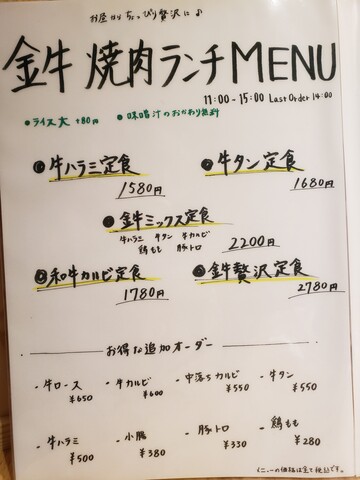 お昼からちょっぴり贅沢に♪
金牛 焼肉ランチMENU
11:00-15:00 Last Order 14:00
●ライス大 +80円 ●味噌汁のおかわり無料
●牛ハラミ定食
1580円
●牛タン定食
1680円
●金牛ミックス定食
牛ハラミ 牛タン 牛カルビ
鶏もも 豚トロ
2200円
●和牛カルビ定食
1780円
●金牛贅沢定食
2780円
お得な追加オーダー
・牛ロース ¥650
・牛カルビ ¥600
・中落ちカルビ ¥550
・牛タン ¥550
・牛ハラミ ¥500
・小腸 ¥380
・豚トロ ¥330
・鶏もも ¥280
メニューの価格は全て税込です。